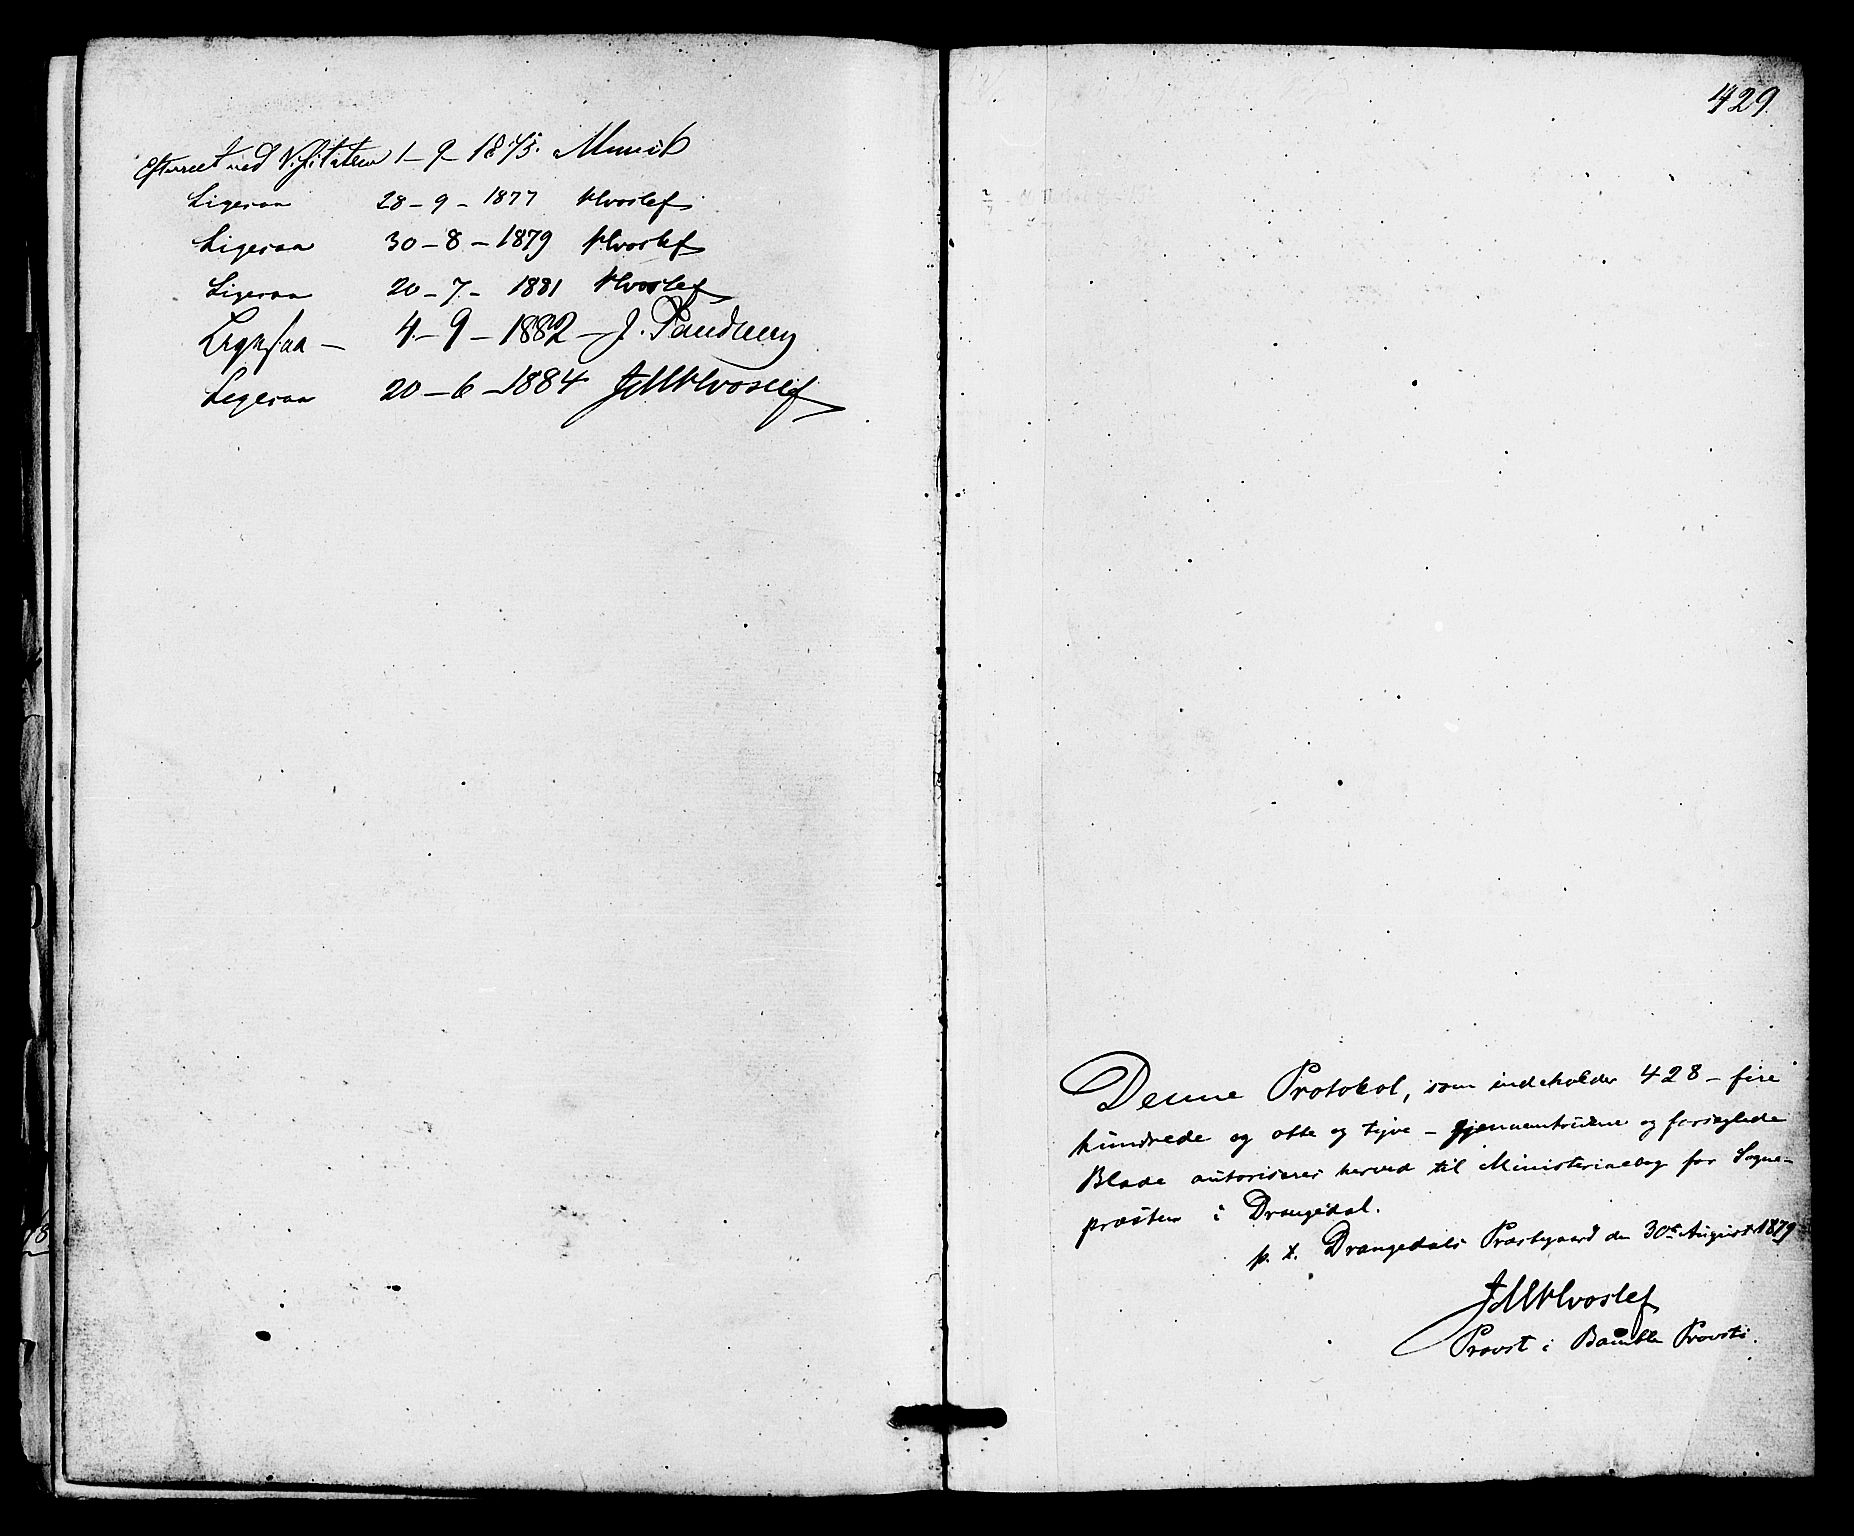 Efterseet ved Visitatsen 1-9-1875. Munch
Ligesaa 28-9-1877 Hvoslef
Ligesaa 30-8-1879 Hvoslef
Ligesaa 20-7-1881 Hvoslef
Ligesaa - 4-9-1882 - J.
Ligesaa 20-6-1884 JMHvoslef
429.
Denne Protokol, som indeholder 428 - fire
hundrede og otte og tyve - gjennemtrukne og forseglede
Blade autoriseres herved til Ministerialbog for Sogne-
præsten i Drangedal.
p. t. Drangedals Præstegaard den 30te August 1879
JMHvoslef
Provst i Bamble Provsti.